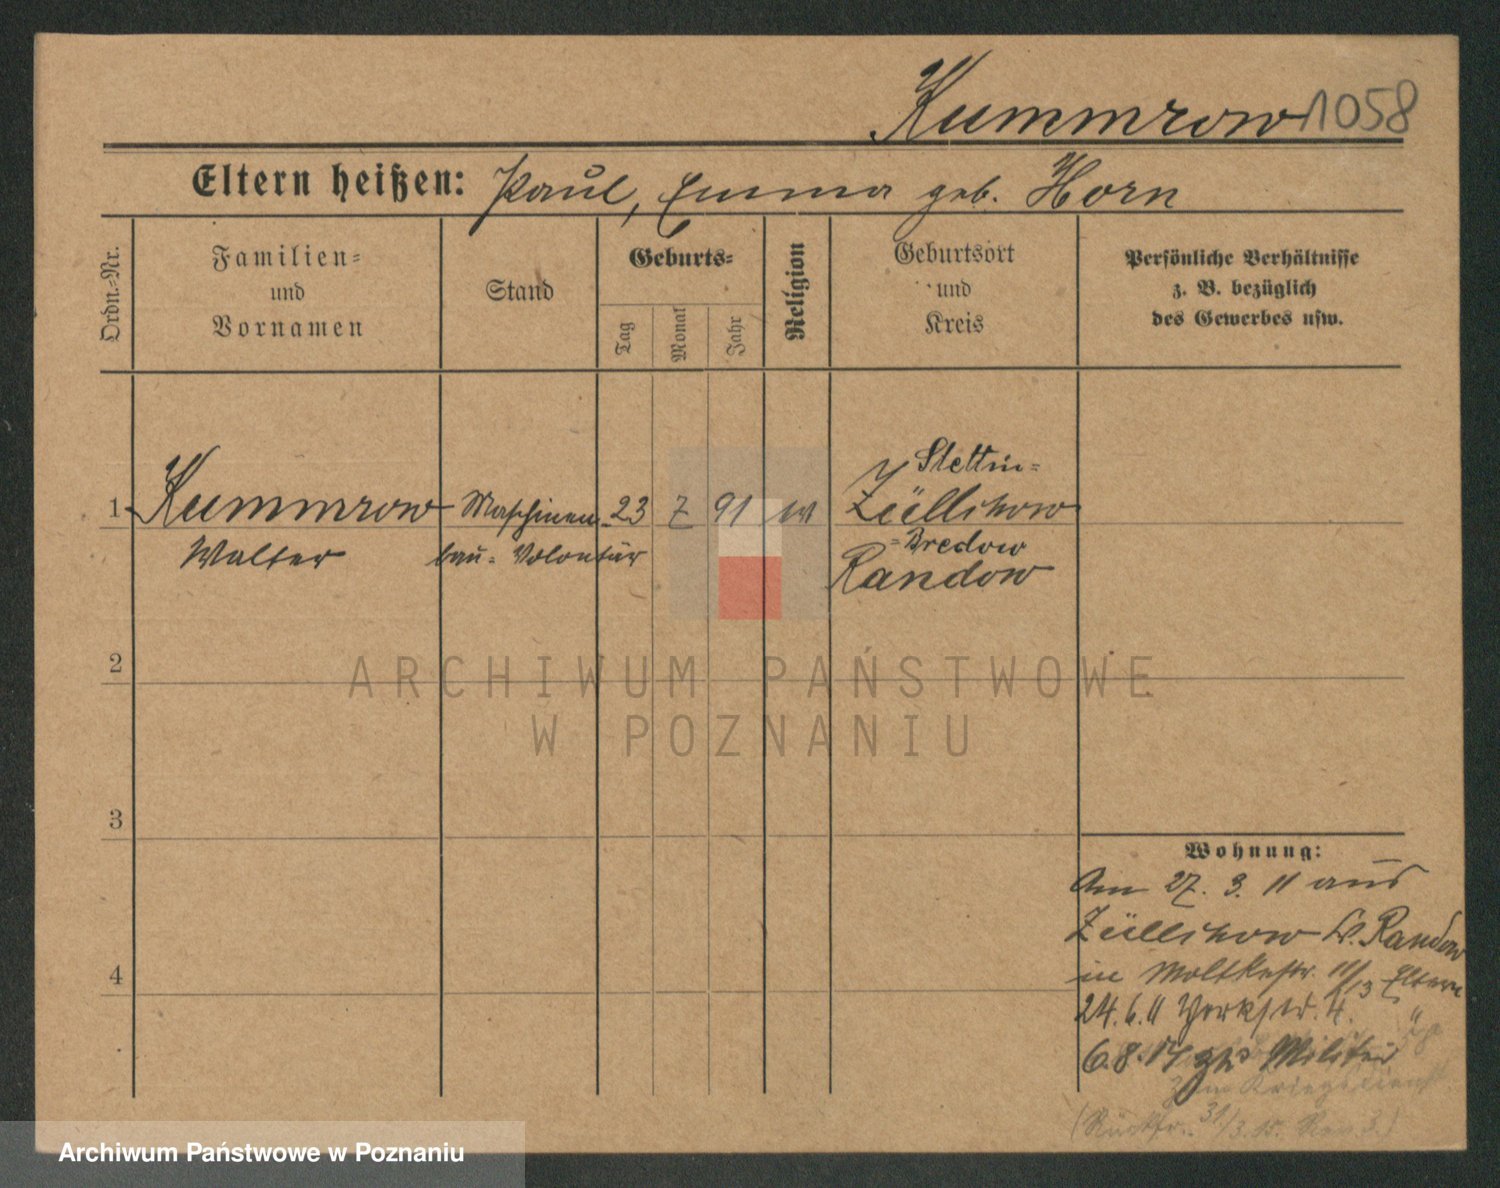 Kummrow 1058
Eltern heißen: Paul, Emma geb. Horn
Ordn.-Nr.
Familien-
und
Vornamen
Stand
Geburts-
Tag
Monat
Jahr
Religion
Geburtsort
und
Kreis
Persönliche Verhältnisse
z. B. bezüglich
des Gewerbes usw.
Stettin-
1 Kummrow Maschinen- 23 7 91 ev Züllchow
-Bredow
Walter bau-Volontär Randow
2
ARCHIWUM PAŃSTWOWE
W POZNANIU
3
Wohnung:
Am 27. 3. 11 aus
Züllchow Kr. Randow
in Moltkestr. Eltern
24. 6. 11 Yorkstr. 4. "
4
6. 8. 14 Militär
zum Kriegsdienst
(Rückfr. 31/3. 15. Rev. 3.)
Archiwum Państwowe w Poznaniu